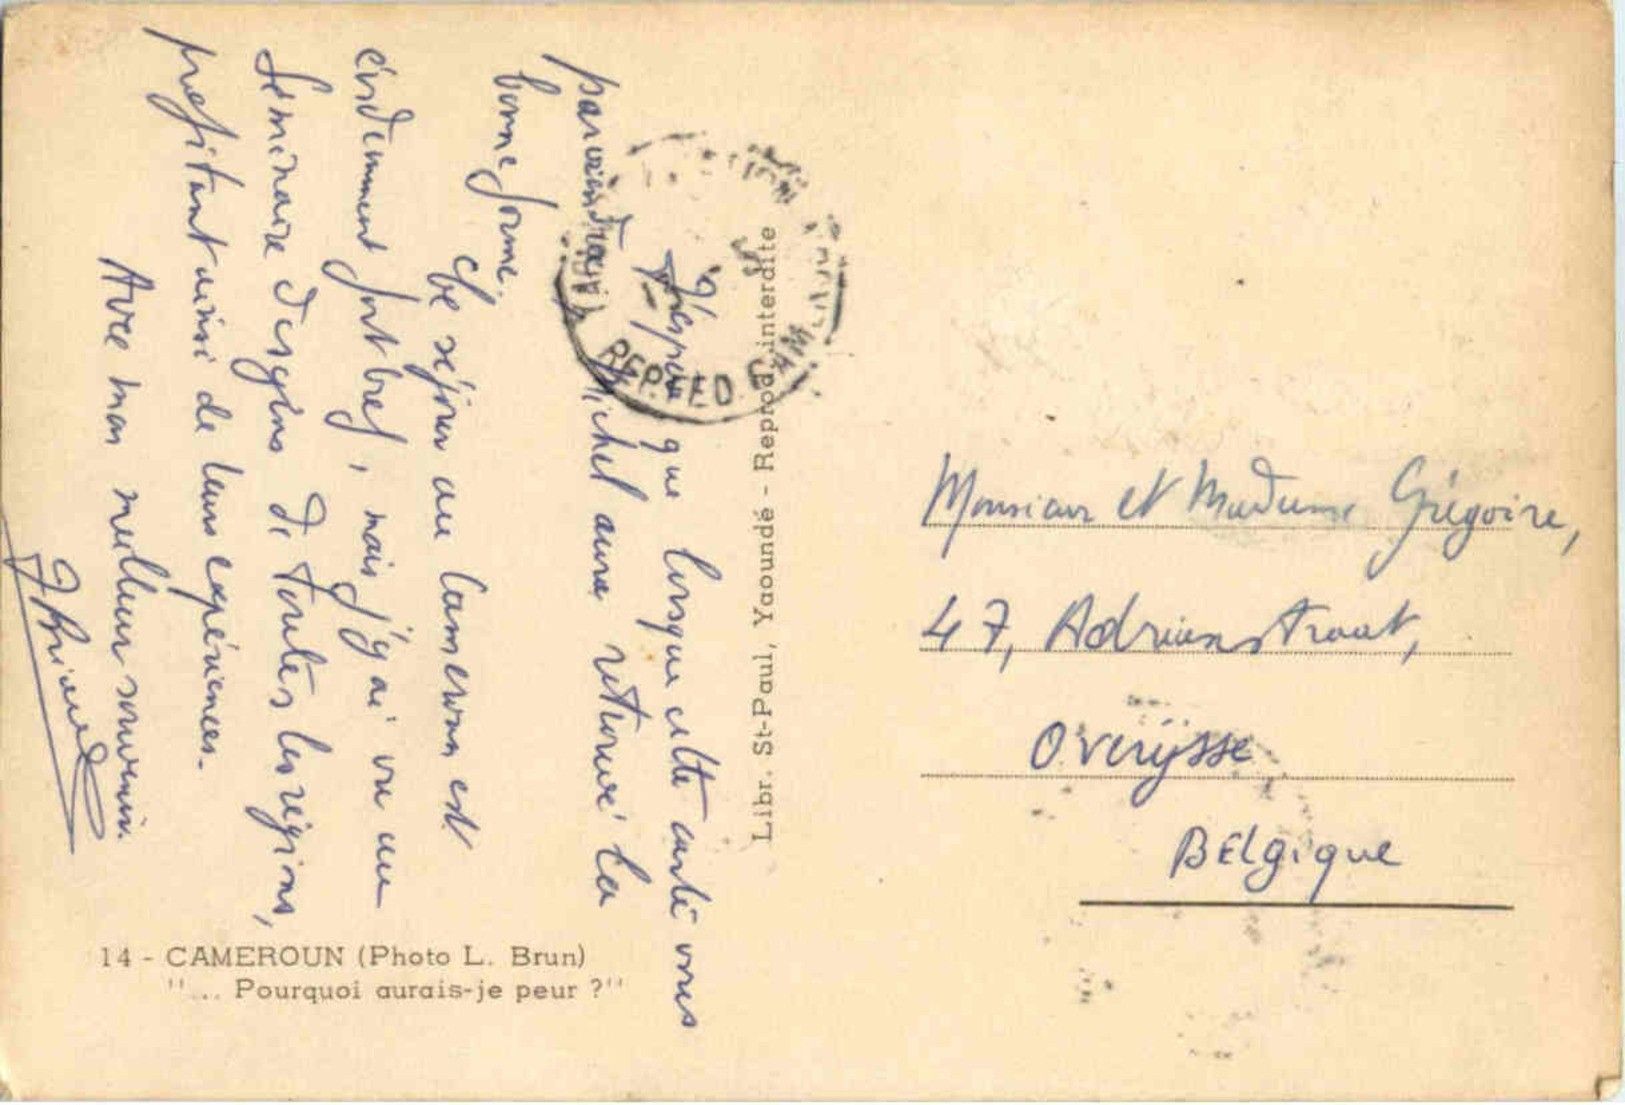 J'espère que lorsque cette carte vous
parviendra Michel aura retrouvé la
bonne forme.
Ce séjour au Cameroun est
évidemment fort bref, mais j'y ai vu un
Séminaire des gens de toutes les régions,
profitant ainsi de leurs expériences.
Avec mon meilleur souvenir.
REP. FED. CAM
Libr. St-Paul, Yaoundé - Reprod. interdite
Monsieur et Madame Grégoire,
47, Adrienstraat,
Overijsse
Belgique
14 - CAMEROUN (Photo L. Brun)
"... Pourquoi aurais-je peur ?"